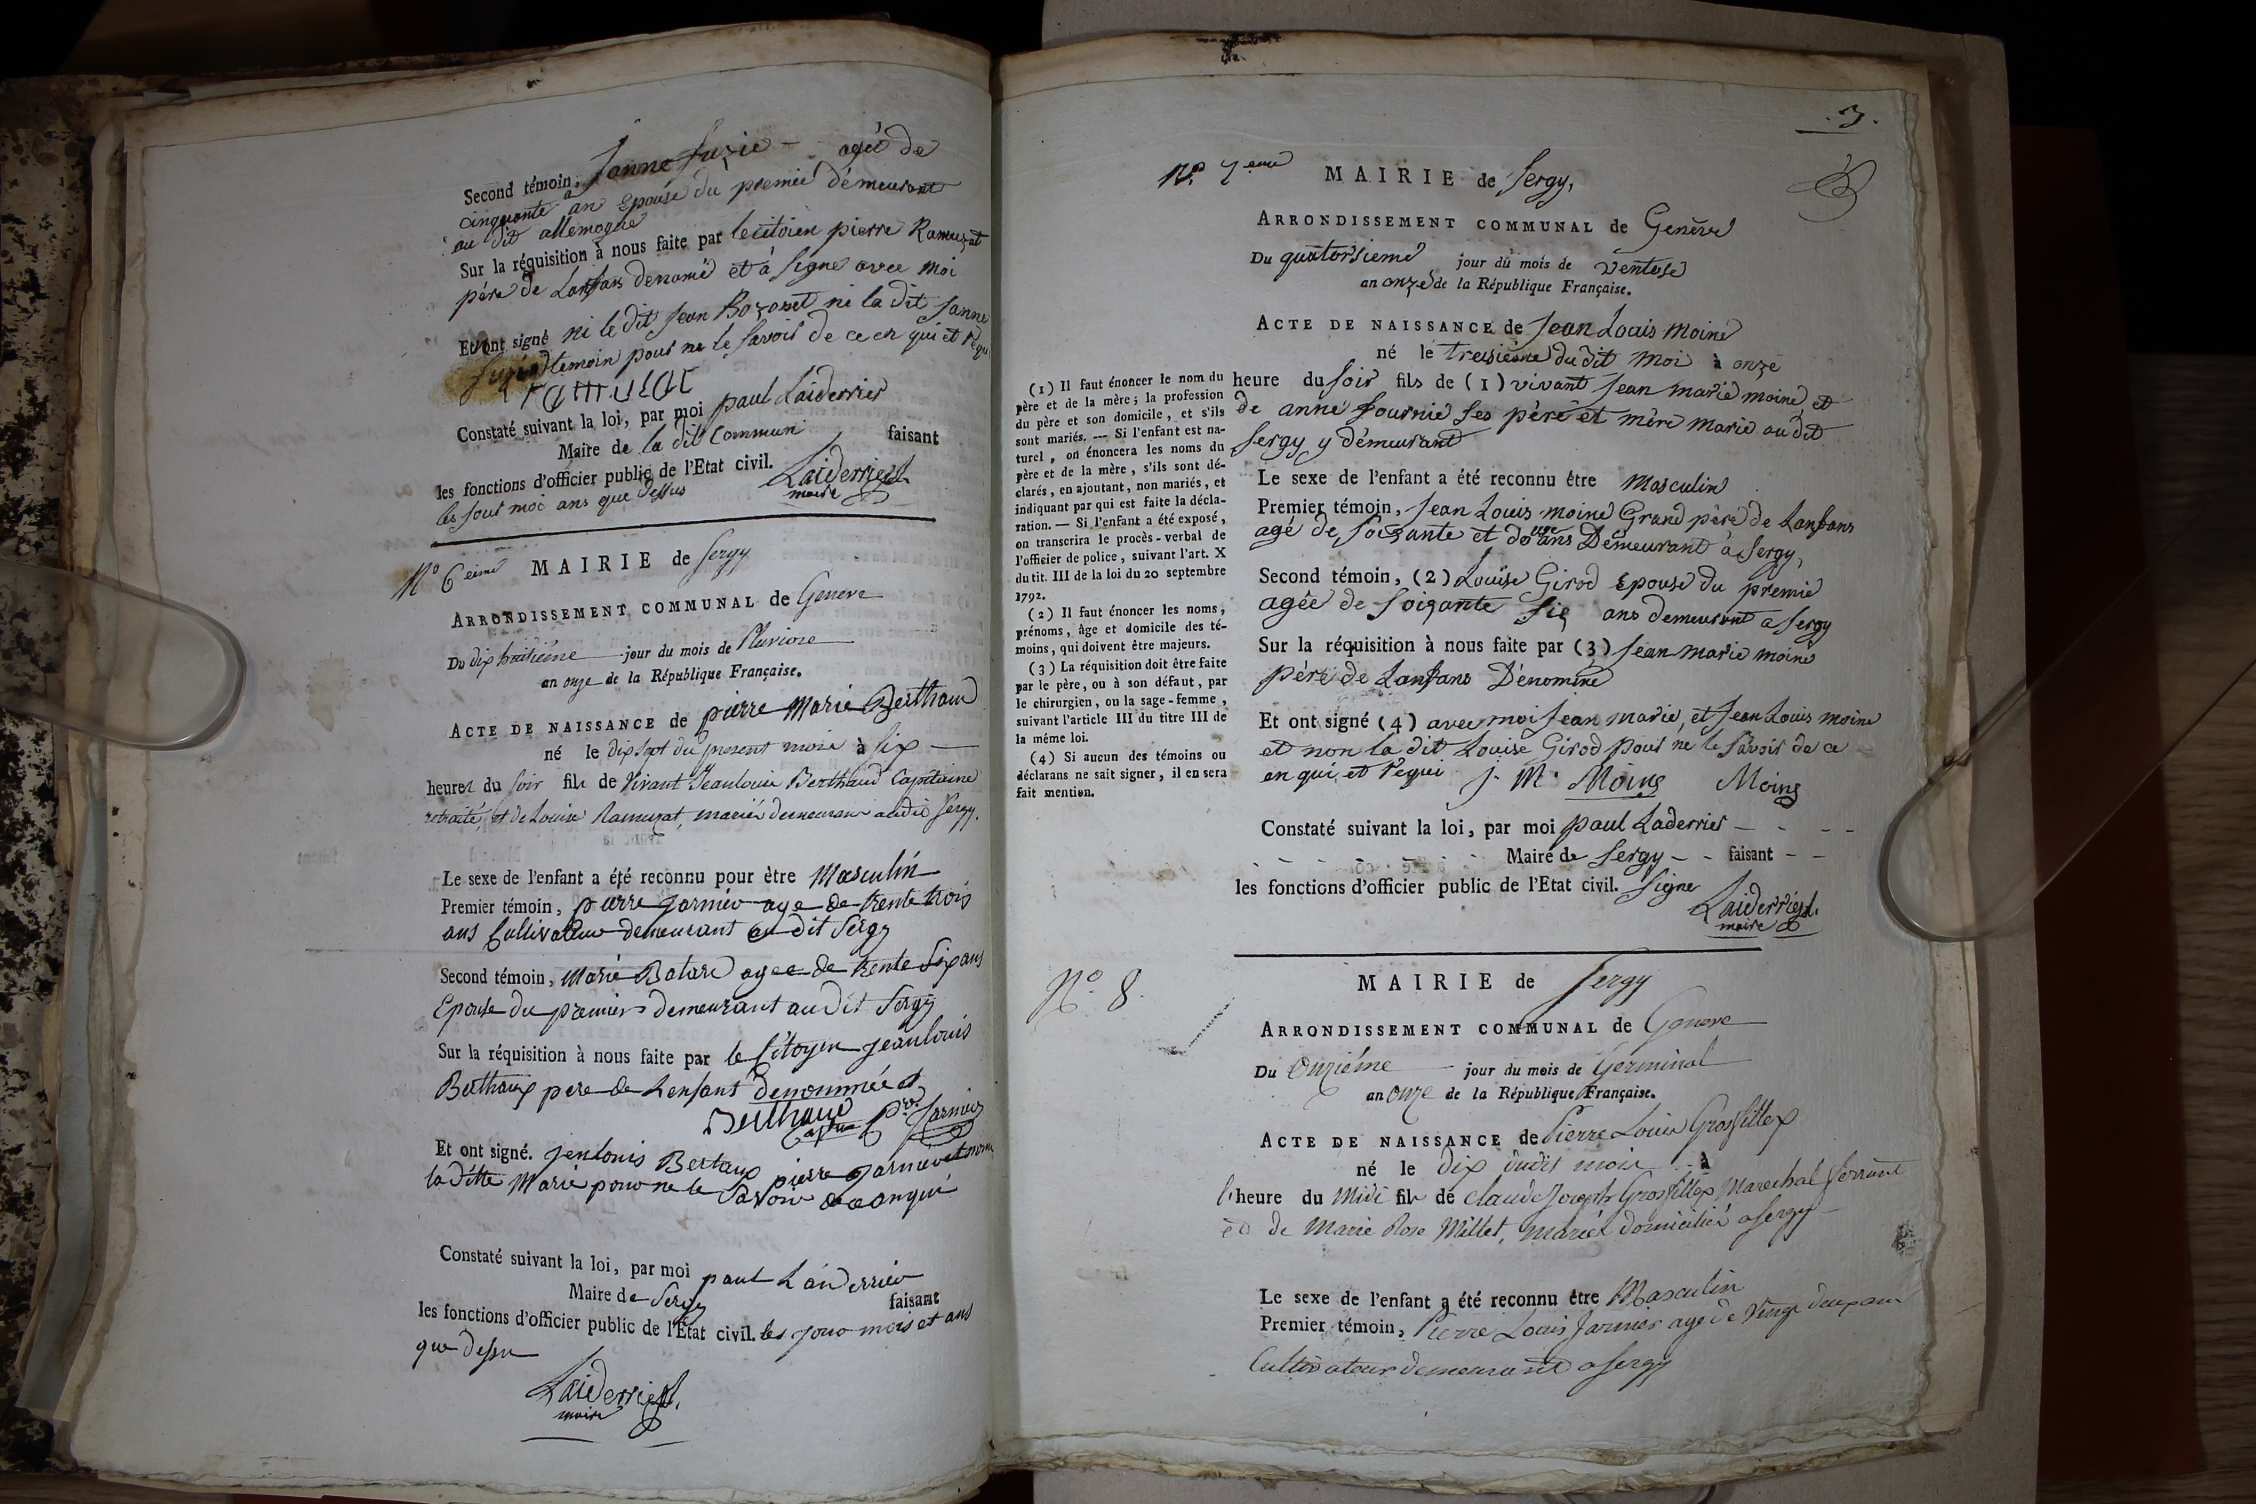 Second témoin, Janne Suzie - agée de
cinquante an Epouse du premié démeurant
au dit allemogne
Sur la réquisition à nous faite par le citoien pierre Ramuzat
père de Lanfans denomé et à signé avec moi
Et ont signé ni le dit Jean Bozonet ni la dit Janne
Suzie temoin pour ne le savoir de ce en qui et requi
ramusat
Constaté suivant la loi, par moi paul Laiderrier
Maire de la dit Commun faisant
les fonctions d'officier public de l'Etat civil.
les jour moi ans que dessus
Laiderrier
maire
No 6eime MAIRIE de Sergy
ARRONDISSEMENT COMMUNAL de Geneve
Du dixhuitiéme jour du mois de Pluviose
an onze de la République Française.
ACTE DE NAISSANCE de pierre Marie Berthaud
né le dix sept du present mois à six
heures du soir fils de vivant Jeanlouis Berthaud Capitaine
retraité, et de Louise Ramuzat, mariés demeurans audit Sergy.
Le sexe de l'enfant a été reconnu pour être Masculin
Premier témoin, pierre Jarniev aye de trente trois
ans Cultivateur demeurant au dit Sergy
Second témoin, Marie Batard agee de trente six ans
Epouse du premier demeurant au dit Sergy
Sur la réquisition à nous faite par le Citoyen jeanlouis
Berthaux pere de Lenfant denommée et
Berthaud
Et ont signé. jenlouis Bertaux pierre Jarniev et non
la ditte Marie pour ne le Savoir de ce enqui
Constaté suivant la loi, par moi paul Laiderriev
Maire de Sergy faisant
les fonctions d'officier public de l'Etat civil. les jour mois et ans
que dessu
Laiderrier
maire
.3.
No. 7eme MAIRIE de Sergy,
ARRONDISSEMENT COMMUNAL de Genève
Du quatorsieme jour du mois de ventose
an onze de la République Française.
ACTE DE NAISSANCE de Jean Louis Moine
né le tresiéme du dit moi à onze
heure du soir fils de (1) vivant Jean marie moine et
de anne fournié ses père et mère marie au dit
Sergy y démeurant
Le sexe de l'enfant a été reconnu être Masculin
Premier témoin, Jean Louis moine Grand père de Lanfans
agé de soizante et douze ans Démeurant à Sergy,
Second témoin, (2) Louise Girod Epouse du premie
agée de soizante six ans demeurant a Sergy
Sur la réquisition à nous faite par (3) Jean marie moine
pére de Lanfans Dénomine
Et ont signé (4) avec moi Jean marie, et Jean Louis moine
et non la dit Louise Girod pour né le savoir de ce
en qui et requi J. M. Moine Moine
Constaté suivant la loi, par moi paul Laderrier - - - -
Maire de Sergy - - faisant - -
les fonctions d'officier public de l'Etat civil. signe
Laiderrier
maire
(1) Il faut énoncer le nom du
père et de la mère; la profession
du père et son domicile, et s'ils
sont mariés. — Si l'enfant est na-
turel, on énoncera les noms du
père et de la mère, s'ils sont dé-
clarés, en ajoutant, non mariés, et
indiquant par qui est faite la décla-
ration. — Si l'enfant a été exposé,
on transcrira le procès-verbal de
l'officier de police, suivant l'art. X
du tit. III de la loi du 20 septembre
1792.
(2) Il faut énoncer les noms,
prénoms, âge et domicile des té-
moins, qui doivent être majeurs.
(3) La réquisition doit être faite
par le père, ou à son défaut, par
le chirurgien, ou la sage-femme,
suivant l'article III du titre III de
la même loi.
(4) Si aucun des témoins ou
déclarans ne sait signer, il en sera
fait mention.
No. 8. MAIRIE de Sergy
ARRONDISSEMENT COMMUNAL de Geneve
Du Onziéme jour du mois de Germinal
an onze de la République Française.
ACTE DE NAISSANCE de Pierre Louis Grosfillex
né le dix dudit mois à
l'heure du Midi fils de Claude Joseph Grosfillex Marechal ferrant
et de Marie Rose Millet, Mariés domiciliés a Sergy
Le sexe de l'enfant a été reconnu être Masculin
Premier témoin, Pierre Louis Jarnier agé de Vingt deux ans
Cultivateur demeurant a Sergy